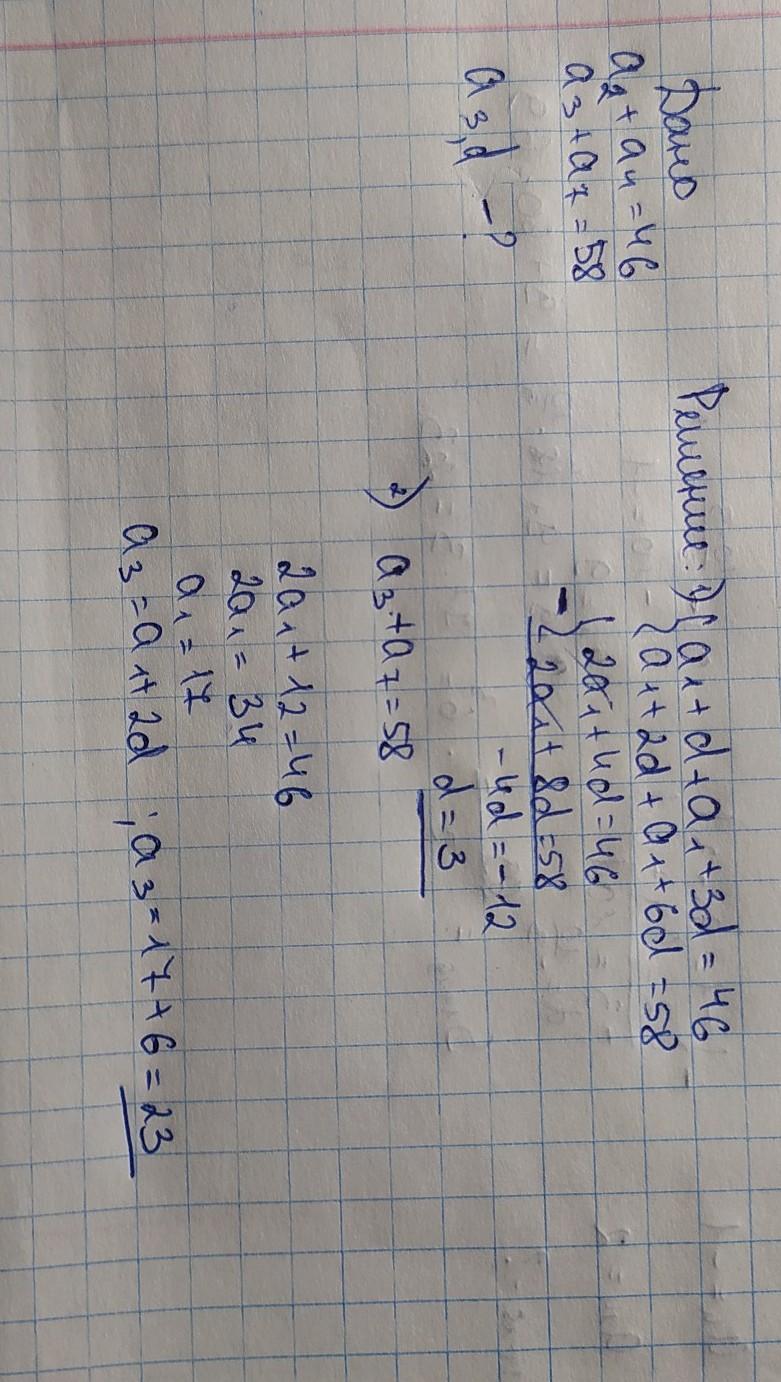 Дано
a2+a4=46
a3+a7=58
a3,d -?
Решение: 1) { a1+d+a1+3d=46
{ a1+2d+a1+6d=58
- { 2a1+4d=46
{ 2a1+8d=58
-4d=-12
d=3
2) a3+a7=58
2a1+12=46
2a1=34
a1=17
a3=a1+2d ; a3=17+6=23